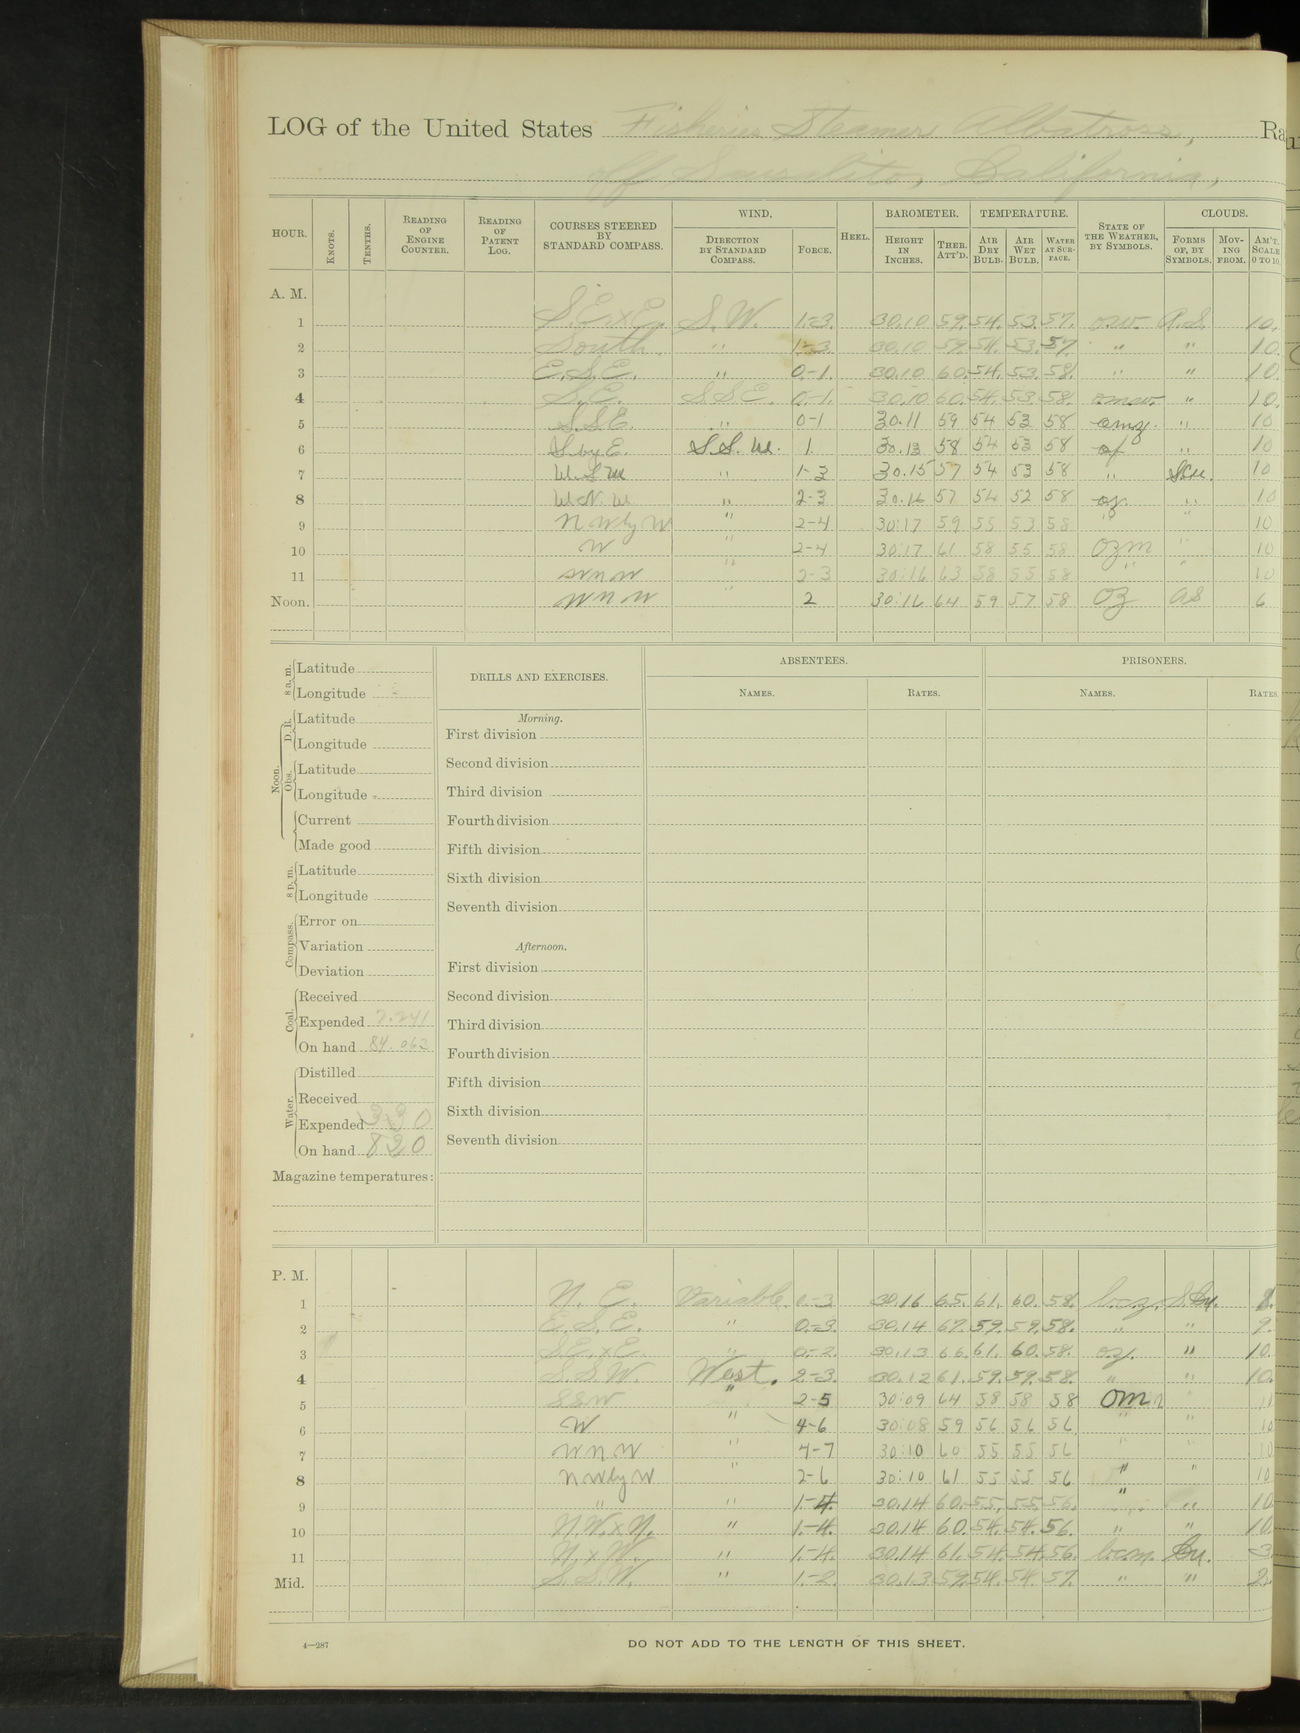 LOG of the United States Fisheries Steamer Albatross, Ra
off Sausalito, California,
HOUR. KNOTS. TENTHS. READING OF ENGINE COUNTER. READING OF PATENT LOG. COURSES STEERED BY STANDARD COMPASS. WIND. DIRECTION BY STANDARD COMPASS. FORCE. HEEL. BAROMETER. HEIGHT IN INCHES. THER. ATT'D. TEMPERATURE. AIR DRY BULB. AIR WET BULB. WATER AT SURFACE. STATE OF THE WEATHER, BY SYMBOLS. CLOUDS. FORMS OF, BY SYMBOLS. MOVING FROM. AM'T. SCALE 0 TO 10.
A. M.
1 S.E.xE. S.W. 1-3. 30.10 59. 54. 53. 57. 10.
2 South. " 1-3. 30.10 59. 54. 53. 57. " " 10.
3 E.S.E. " 0-1. 30.10 60. 54. 53. 58. " " 10.
4 S.E. SSE. 0-1. 30.10 60. 54. 53. 58. " 10.
5 S.S.E. " 0-1 30.11 59 54 53 58 " 10
6 S by E. S.S.W. 1. 30.13 58 54 53 58 " 10
7 W.S.W " 1-3 30.15 57 54 53 58 " 10
8 W.N.W " 2-3 30.16 57 54 52 58 oz. " 10
9 N W by W " 2-4 30:17 59 55 53 58 " " 10
10 W " 2-4 30:17 61 58 55 58 ozm " 10
11 W N W " 2-3 30:16 63 58 55 58 " " 10
Noon. W N W " 2 30:16 64 59 57 58 oz as 6
8 a. m. Latitude
Longitude
Noon. D. R. Latitude
Longitude
Obs. Latitude
Longitude
Current
Made good
8 p. m. Latitude
Longitude
Compass. Error on
Variation
Deviation
Coal. Received
Expended 2.241
On hand 84.062
Water. Distilled
Received
Expended 330
On hand 820
Magazine temperatures:
DRILLS AND EXERCISES.
Morning.
First division
Second division
Third division
Fourth division
Fifth division
Sixth division
Seventh division
Afternoon.
First division
Second division
Third division
Fourth division
Fifth division
Sixth division
Seventh division
ABSENTEES.
NAMES. RATES.
PRISONERS.
NAMES. RATES.
P. M.
1 N. E. Variable 0-3 30.16 65. 61. 60. 58. 8.
2 E.S.E. " 0-3. 30.14 67. 59. 59. 58. " " 9.
3 S.E.xE. " 0-2 30.13 66. 61. 60. 58. oz. " 10.
4 S.S.W. West. 2-3. 30.12 61. 59. 59. 58. " " 10.
5 SSW " 2-5 30:09 64 58 58 58 om "
6 W " 4-6 30:08 59 56 56 56 " " 10
7 W N W " 4-7 30:10 60 55 55 56 " " 10
8 N W by W " 2-6 30:10 61 55 55 56 " " 10
9 " " 1-4. 30.14 60. 55. 55. 56. " " 10.
10 N.W.xN. " 1-4. 30.14 60. 54. 54. 56. " " 10.
11 N.xW. " 1-4. 30.14 61. 54. 54. 56. bcm. Cu. 3.
Mid. S.S.W. " 1-2. 30.13 59. 54. 54. 57. " " 2.
4—287
DO NOT ADD TO THE LENGTH OF THIS SHEET.